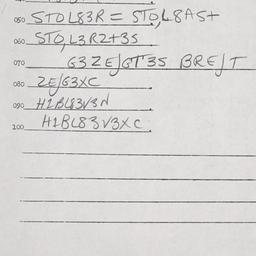 050 STOL83R = STO,L8AS+
060 STO,L3R2+3S
070 G3ZE/GT3S BRE/T
080 ZE/G3XC
090 H1BL83V3N
100 H1BL83V3XC.